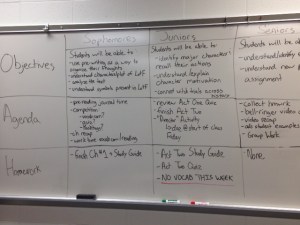 Sophomores
Juniors
Seniors
Objectives
Students will be able to:
- use pre-writing as a way to
organize their thoughts
- understand characters/plot of LotF
- understand symbols present in LotF
Students will be able to:
- identify major characters
recall their actions
- understand/explain
character motivation
- connect
Students will be able
- understand/identify
- understand new
assignment
Agenda
- pre-reading journal time
- competition
- ch recap
- review Act One Quiz
- finish Act Two
Activity
@ start of class
Friday
- collect hmwrk
- bell-ringer video
- video recap
- student examples
- Group Work
Homework
- Finish Ch #1 + Study Guide
- Act Two Study Guide
- Act Two Quiz
- NO VOCAB THIS WEEK
None.